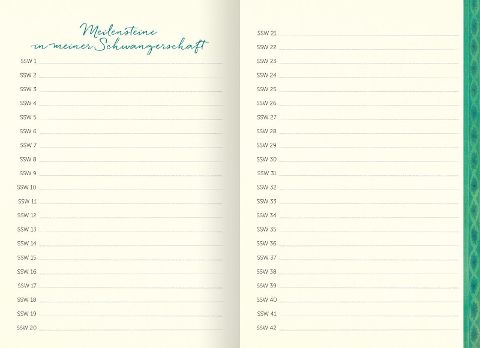 Meilensteine
in meiner Schwangerschaft
SSW 1
SSW 2
SSW 3
SSW 4
SSW 5
SSW 6
SSW 7
SSW 8
SSW 9
SSW 10
SSW 11
SSW 12
SSW 13
SSW 14
SSW 15
SSW 16
SSW 17
SSW 18
SSW 19
SSW 20
SSW 21
SSW 22
SSW 23
SSW 24
SSW 25
SSW 26
SSW 27
SSW 28
SSW 29
SSW 30
SSW 31
SSW 32
SSW 33
SSW 34
SSW 35
SSW 36
SSW 37
SSW 38
SSW 39
SSW 40
SSW 41
SSW 42